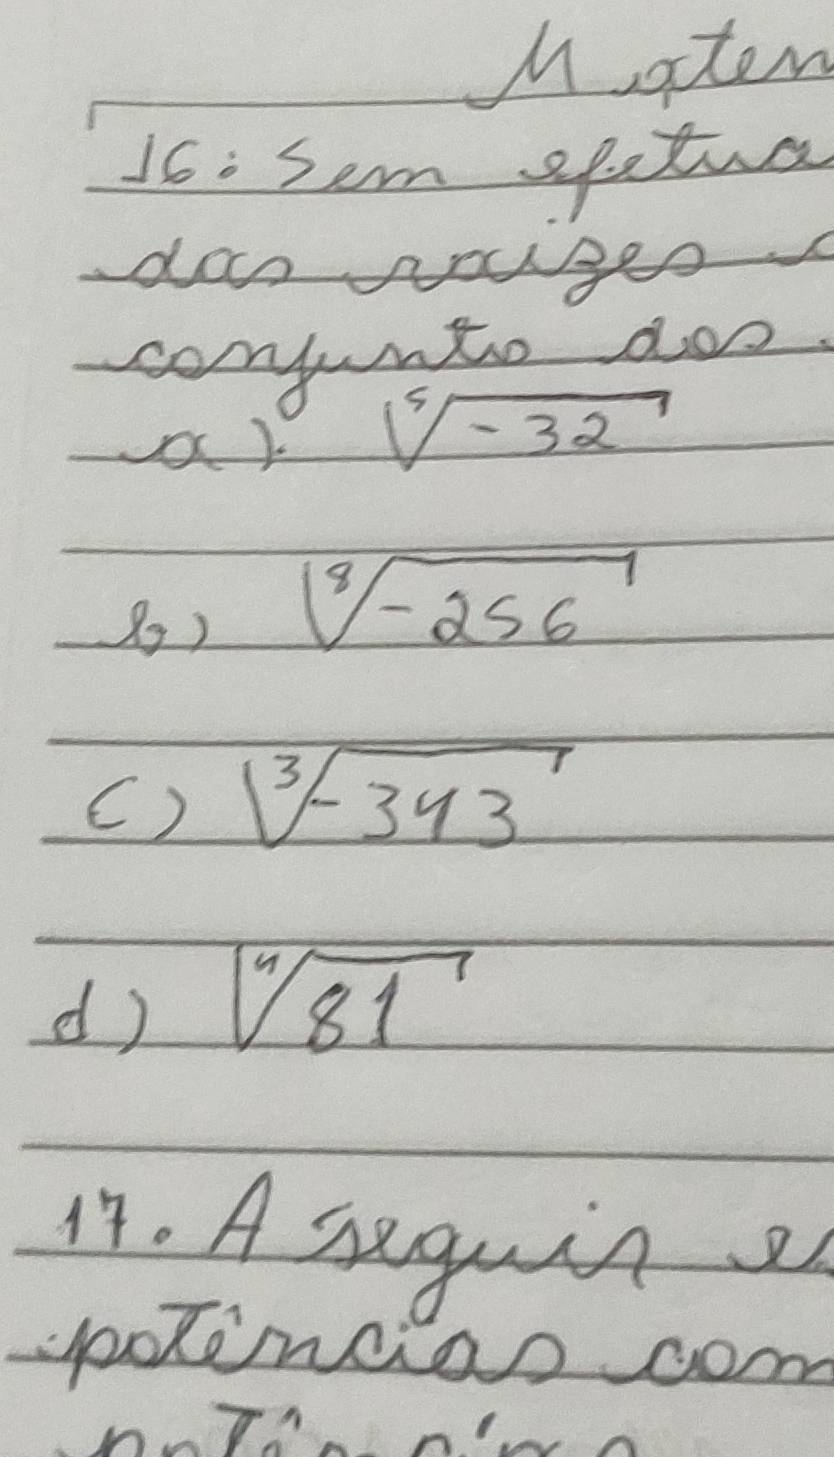 Matem
16: Sem efetua
das raizes
conjunto dos
a) ⁵√-32
b) ⁸√-256
c) ³√-343
d) ⁴√81
17. A seguir e
potências com